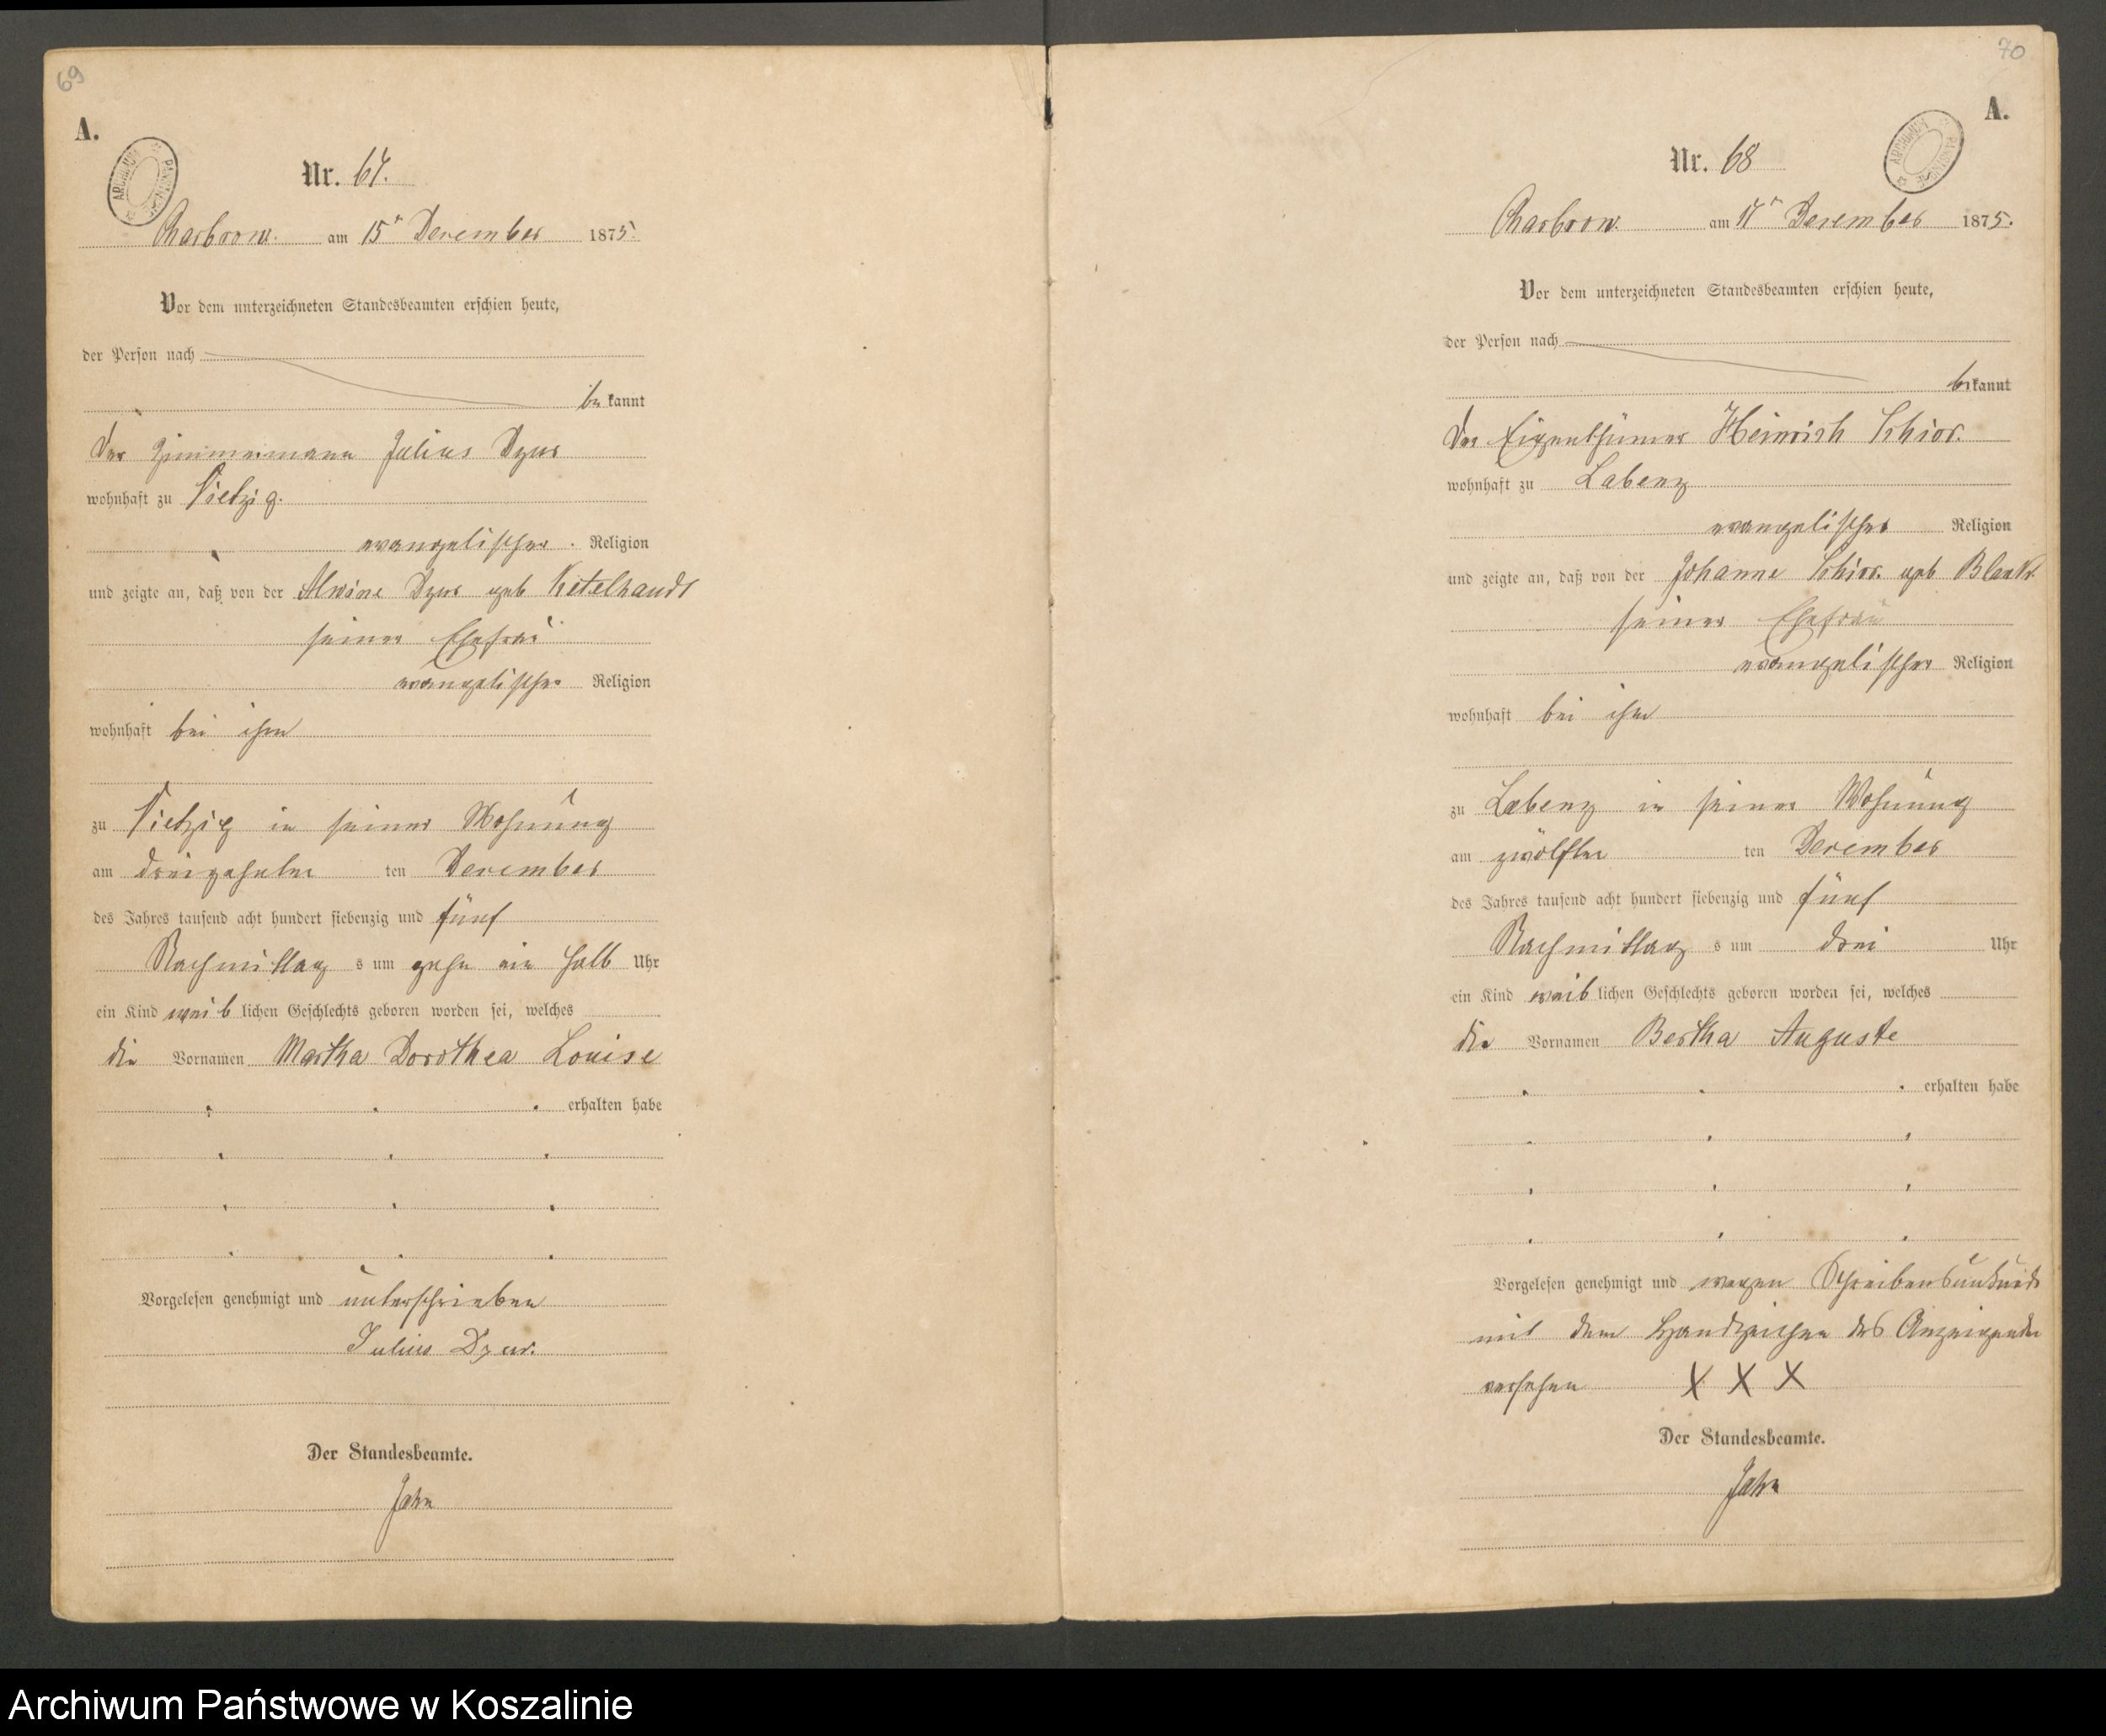 69
A.
ARCHIWUM PAŃSTWOWE
Nr. 67.
Charbrow. am 15n December 1875.
Vor dem unterzeichneten Standesbeamten erschien heute,
der Person nach
be kannt
der Zimmermann Julius Dzur
wohnhaft zu Vietzig.
evangelischer. Religion
und zeigte an, daß von der Alwine Dzur geb Ketelhandt
seiner Ehefrau
evangelischer Religion
wohnhaft bei ihm
zu Vietzig in seiner Wohnung
am dreizehnten ten December
des Jahres tausend acht hundert siebenzig und fünf
Nachmittag s um zehn ein halb Uhr
ein Kind weib lichen Geschlechts geboren worden sei, welches
die Vornamen Martha Dorothea Louise
erhalten habe
Vorgelesen genehmigt und unterschrieben
Julius Dzur.
Der Standesbeamte.
Jahn
70
A.
ARCHIWUM PAŃSTWOWE
Nr. 68
Charbrow. am 17n December 1875.
Vor dem unterzeichneten Standesbeamten erschien heute,
der Person nach
be kannt
der Eigenthümer Heinrich Schior.
wohnhaft zu Labenz
evangelischer Religion
und zeigte an, daß von der Johanne Schior. geb Blank.
seiner Ehefrau
evangelischer Religion
wohnhaft bei ihm
zu Labenz in seiner Wohnung
am zwölften ten December
des Jahres tausend acht hundert siebenzig und fünf
Nachmittag s um drei Uhr
ein Kind weib lichen Geschlechts geboren worden sei, welches
die Vornamen Bertha Auguste
erhalten habe
Vorgelesen genehmigt und wegen Schreibensunkunde
mit dem Handzeichen des Anzeigenden
versehen X X X
Der Standesbeamte.
Jahn
Archiwum Państwowe w Koszalinie